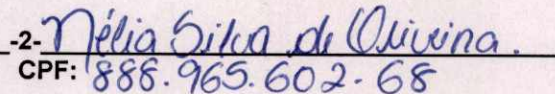 -2- Nélia Silva de Oliveira.
CPF: 888.965.602-68